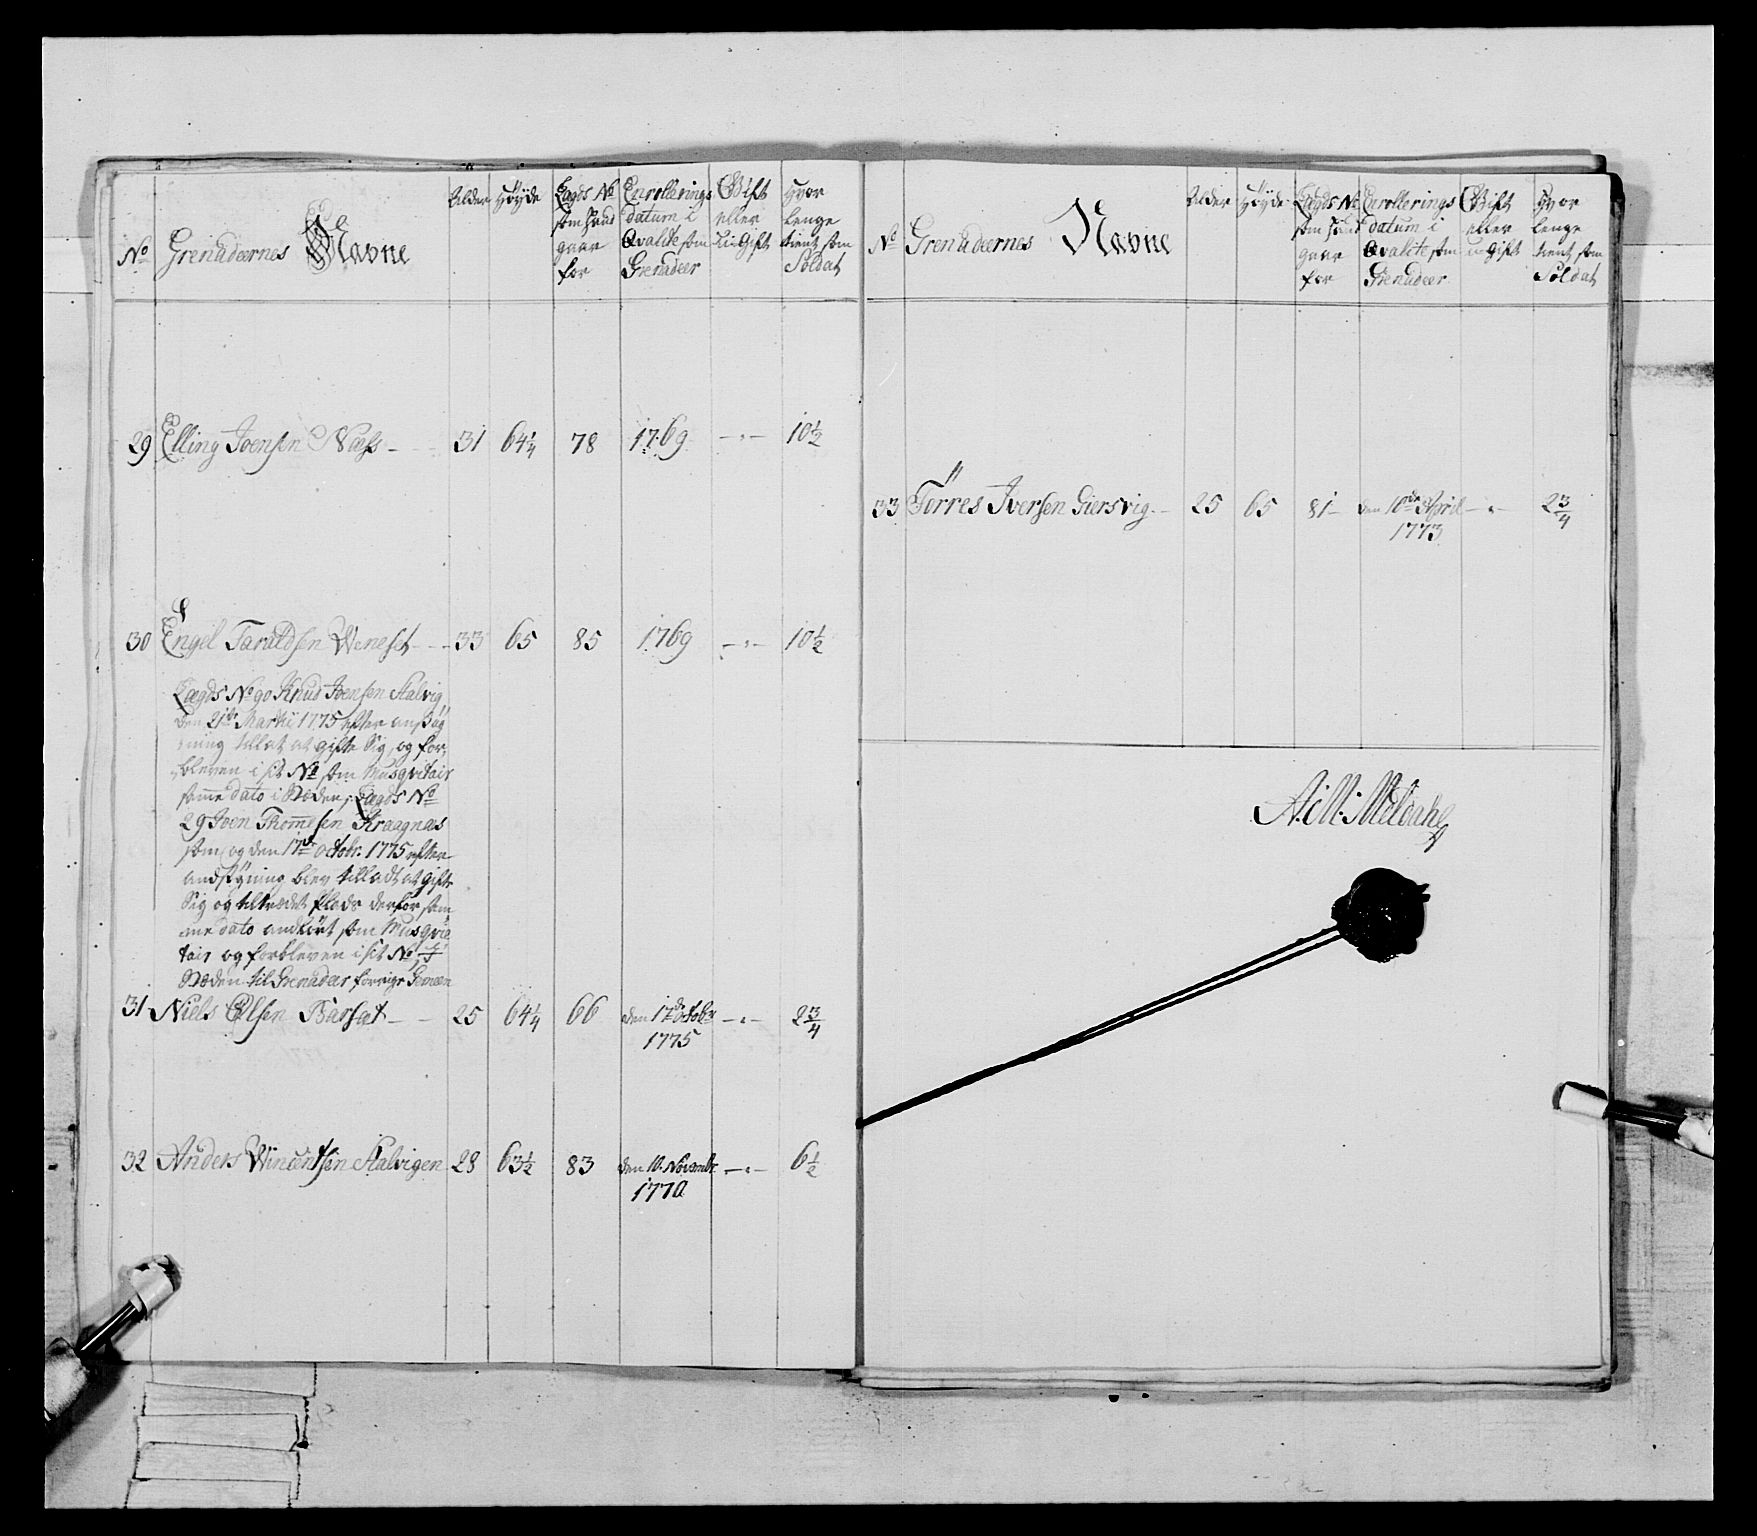 No Grenadeernes Navne Alder Høyde Lægds No som hand gaar for Enrollerings datum i Qvalite som Grenadeer Gift eller u:Gift Hvor lenge tient som Soldat
29 Elling Joensen Næss - - 31 64 1/4 78 1769 -"- 10 1/2
30 Engel Taraldsen Weneset - - 33 65 85 1769 -"- 10 1/2
Lægds No 90 Knud Joensen Aalvig
den 21de Martii 1775 efter ansøg
ning tillat at gifte Sig, og for,
bleven i sit No som Musqvitair
samme dato i Stæden, Lægds No
29 Joen Thommesen Kraagnæs
som og den 17de octobr. 1775 efter
andsøgning blev tilladt at Gifte
Sig og tiltrædet Plads derfor sam
me dato andført som Musqvi
tair og forbleven i sit No
Stæden til Grenadær forrige Gemeen
31 Niels Olsen Barsæt - - 25 64 1/4 66 den 17de octobr 1775 -"- 2 3/4
32 Anders Wincentsen Aalvigen 28 63 1/2 83 den 10. Novembr 1770 -"- 6 1/2
No Grenadeernes Navne Alder Høyde Lægds No som hand gaar for Enrollerings datum i Qvalite som Grenadeer Gift eller u:Gift Hvor lenge tient som Soldat
33 Törres Iversen Giersvig - 25 65 81 - den 10de April 1773 -"- 2 3/4
A: M: Meldahl